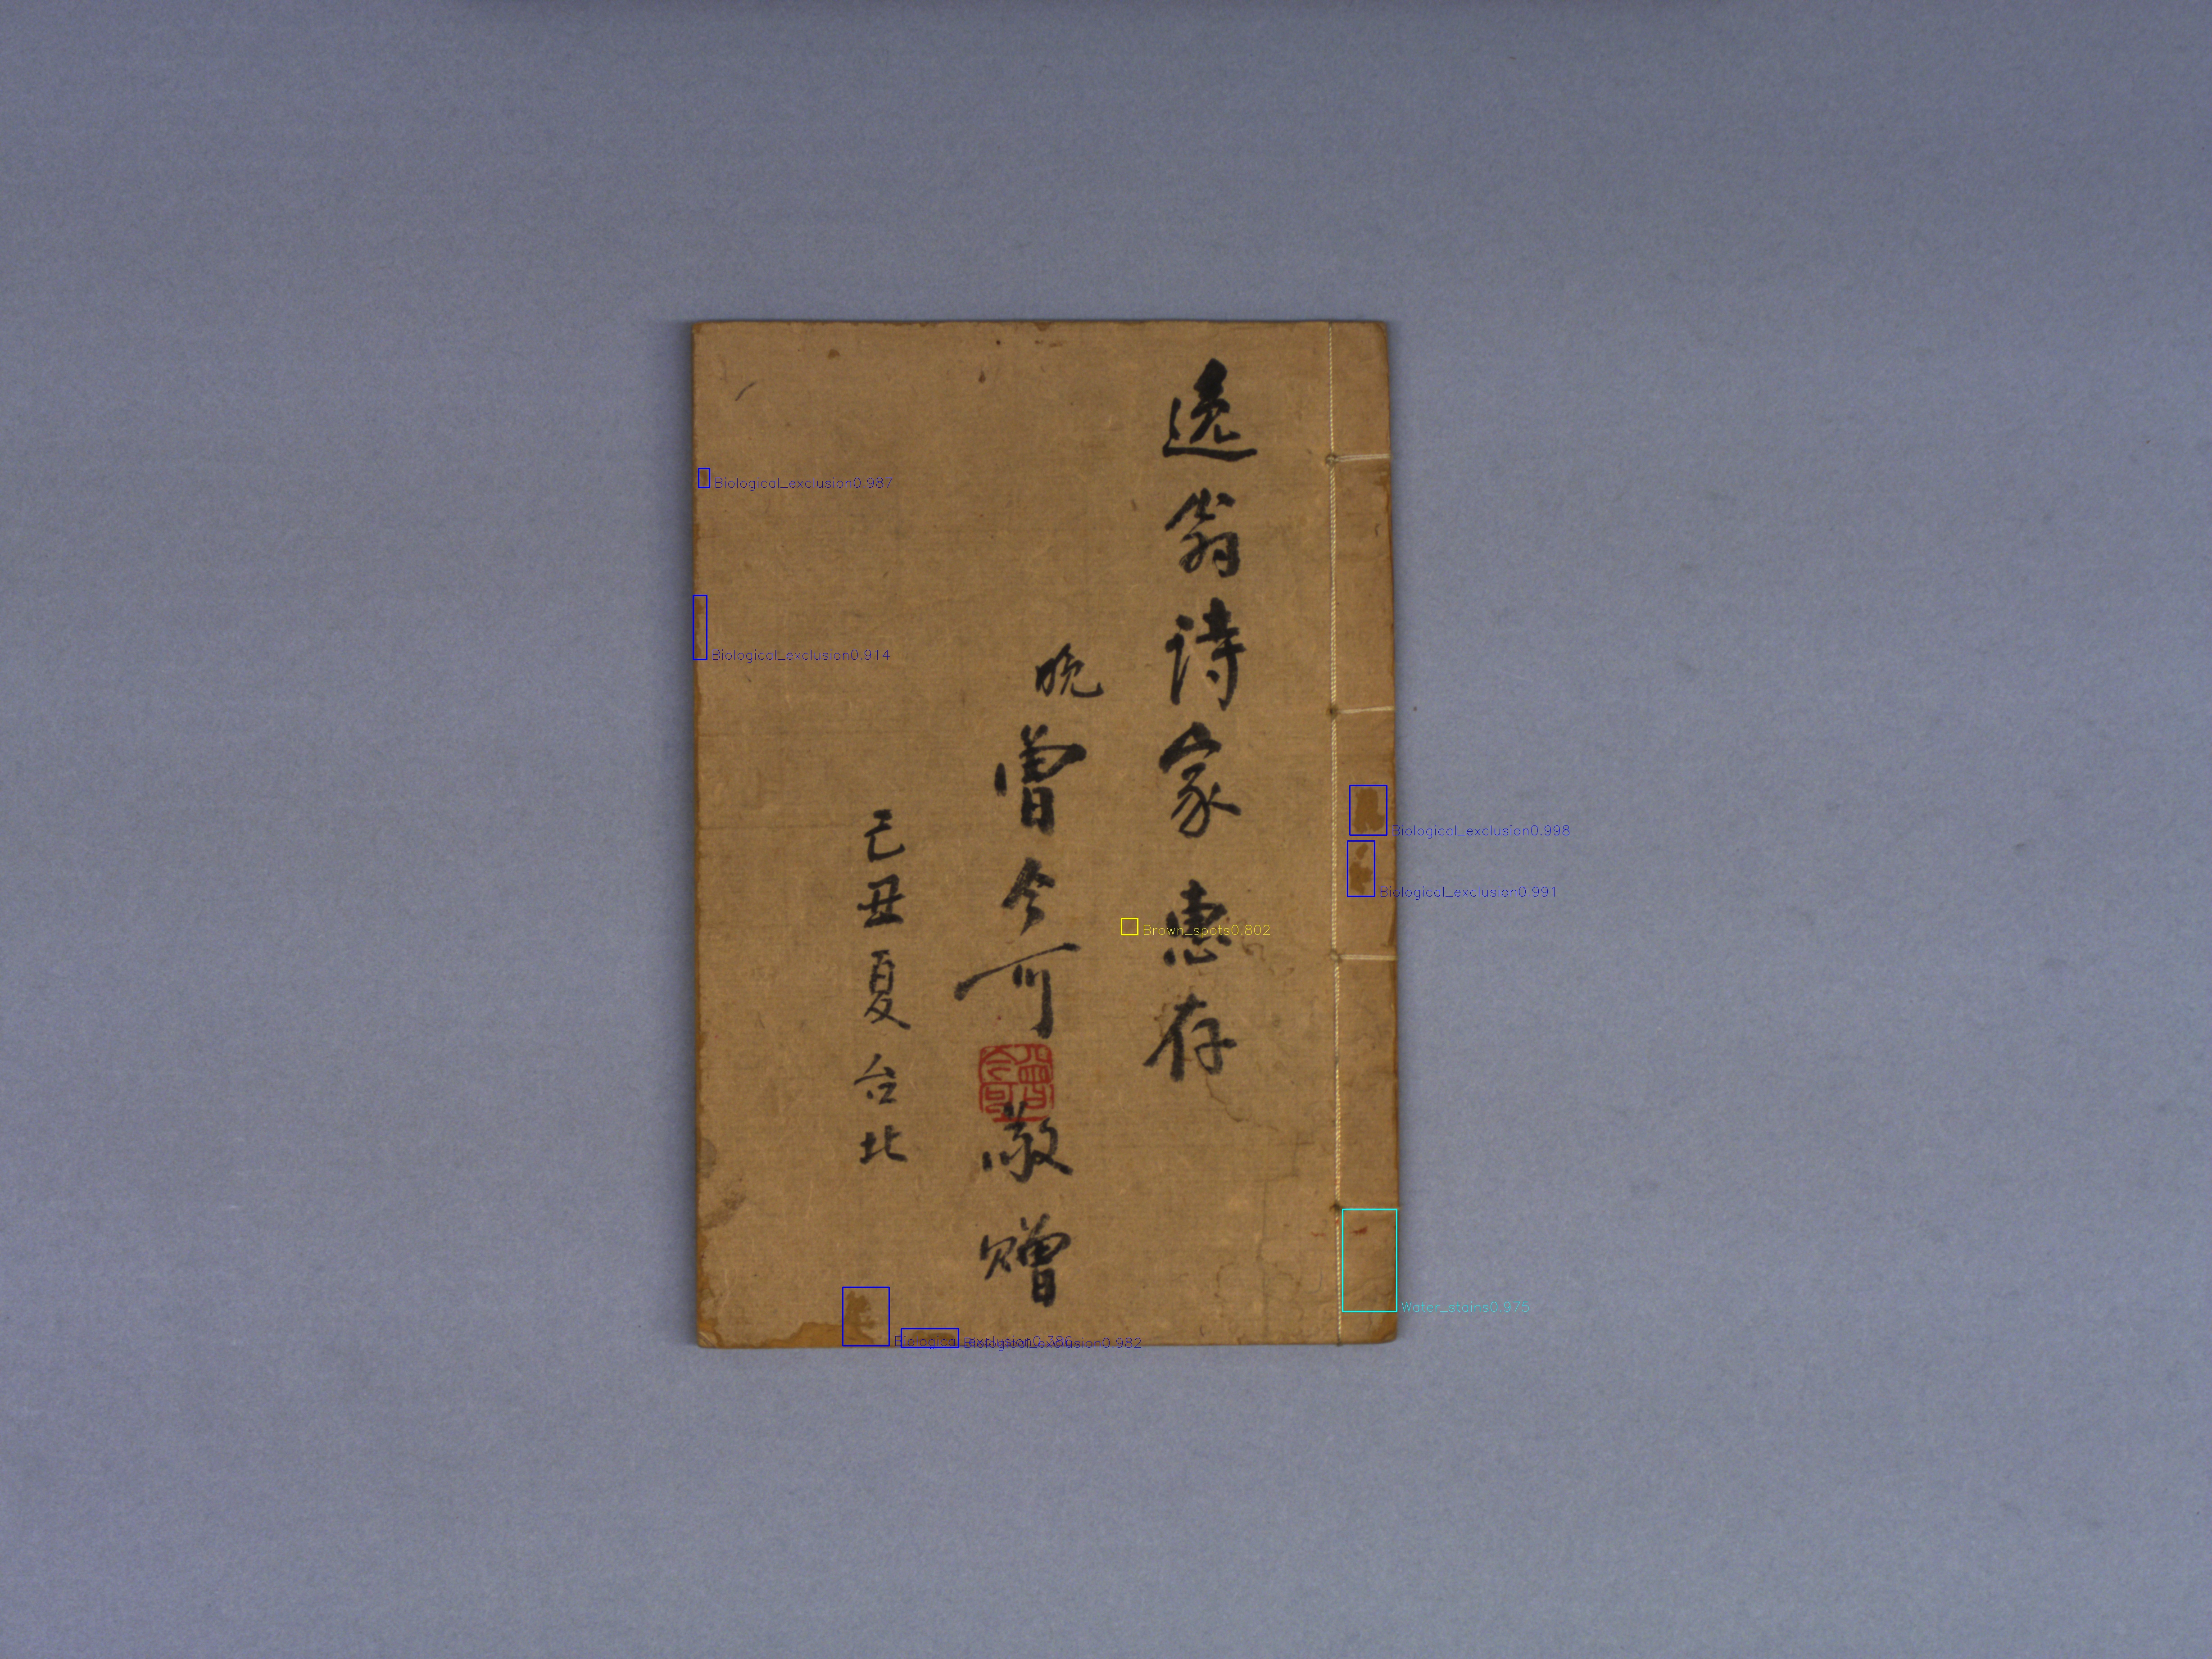 逸翁詩家惠存
晚曾今可敬贈
曾今可
己丑夏台北
Biological_exclusion0.987
Biological_exclusion0.914
Biological_exclusion0.998
Biological_exclusion0.991
Brown_spots0.802
Water_stains0.975
Biological_exclusion0.386
Biological_exclusion0.982